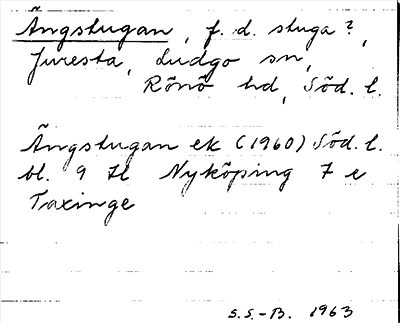 Ängstugan, f. d. stuga?,
Juresta, Ludgo sn,
Rönö hd, Söd. l.
Ängstugan ek (1960) Söd. l.
bl. 9 H Nyköping 7 e
Taxinge
S.S.-B. 1963